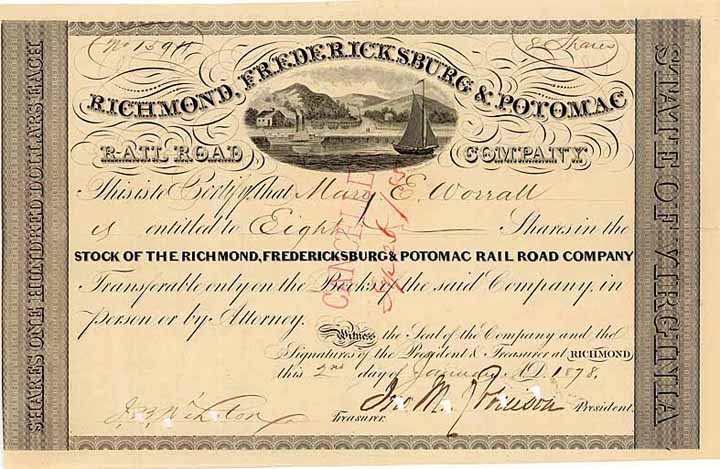 No 1594
8 Shares
RICHMOND, FREDERICKSBURG & POTOMAC
RAIL ROAD COMPANY
This is to Certify, that Mary E. Worrall
is entitled to Eight Shares in the
STOCK OF THE RICHMOND, FREDERICKSBURG & POTOMAC RAIL ROAD COMPANY
Transferable only on the Books of the said Company, in
person or by Attorney.
Witness the Seal of the Company and the
Signatures of the President & Treasurer at RICHMOND
this 2nd day of January A.D. 1878.
J.B. Winston Treasurer.
Jno M. Robinson President.
SHARES ONE HUNDRED DOLLARS EACH
STATE OF VIRGINIA
CANCELLED